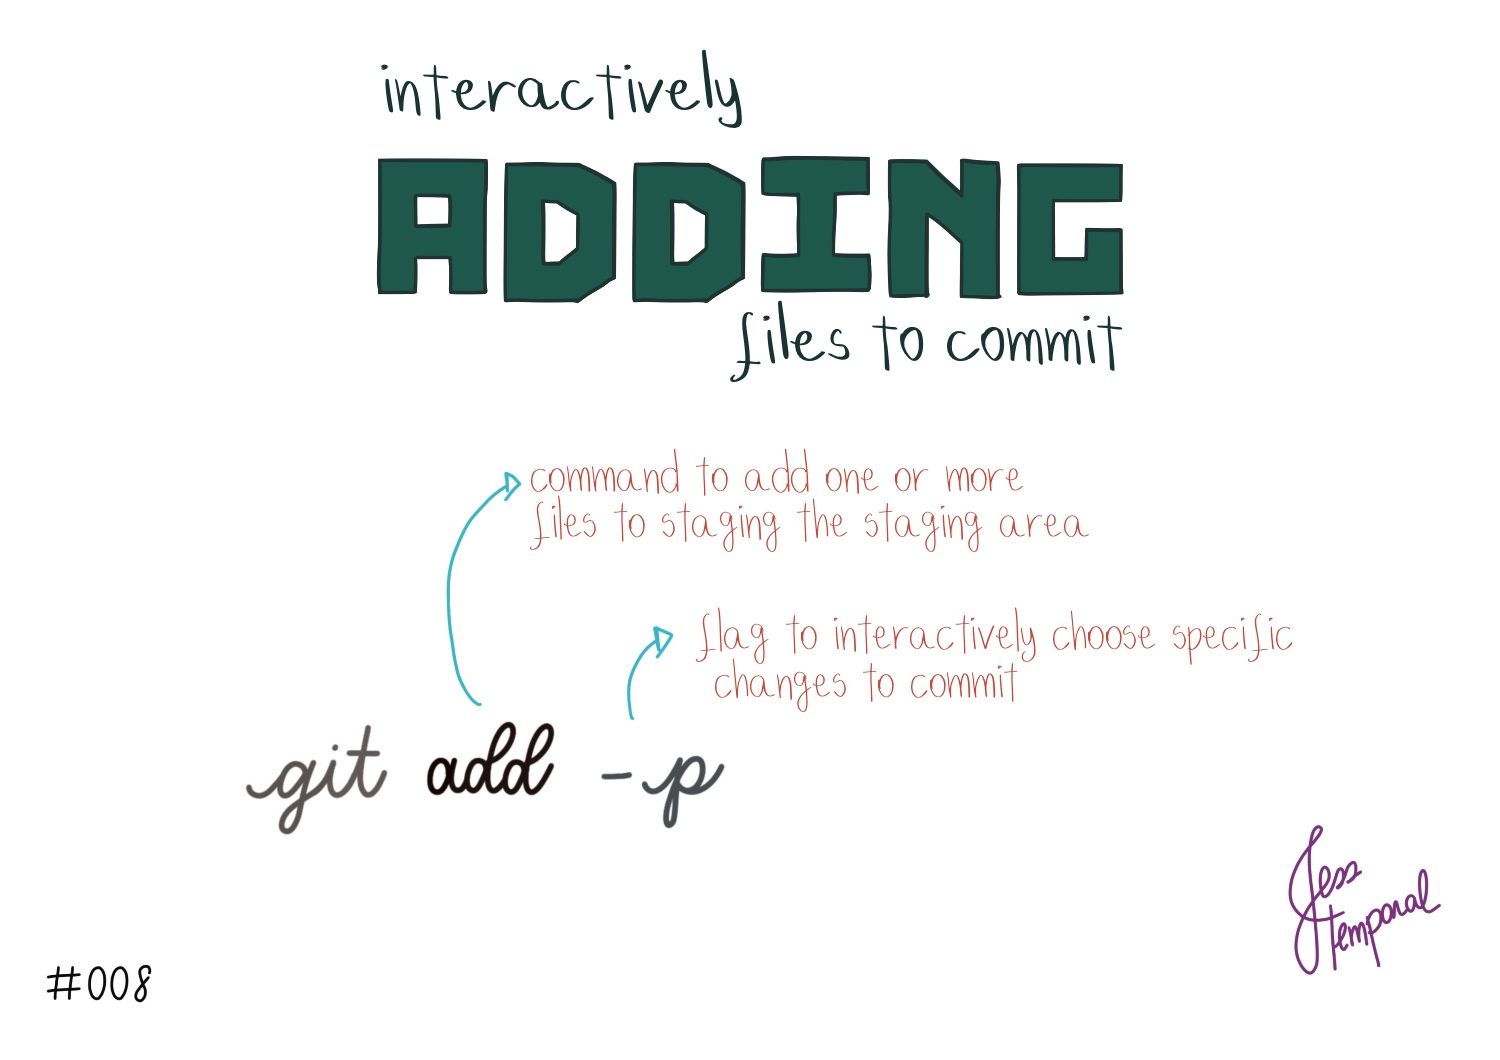 interactively
ADDING
files to commit
command to add one or more
files to staging the staging area
flag to interactively choose specific
changes to commit
git add -p
Jess
temporal
#008